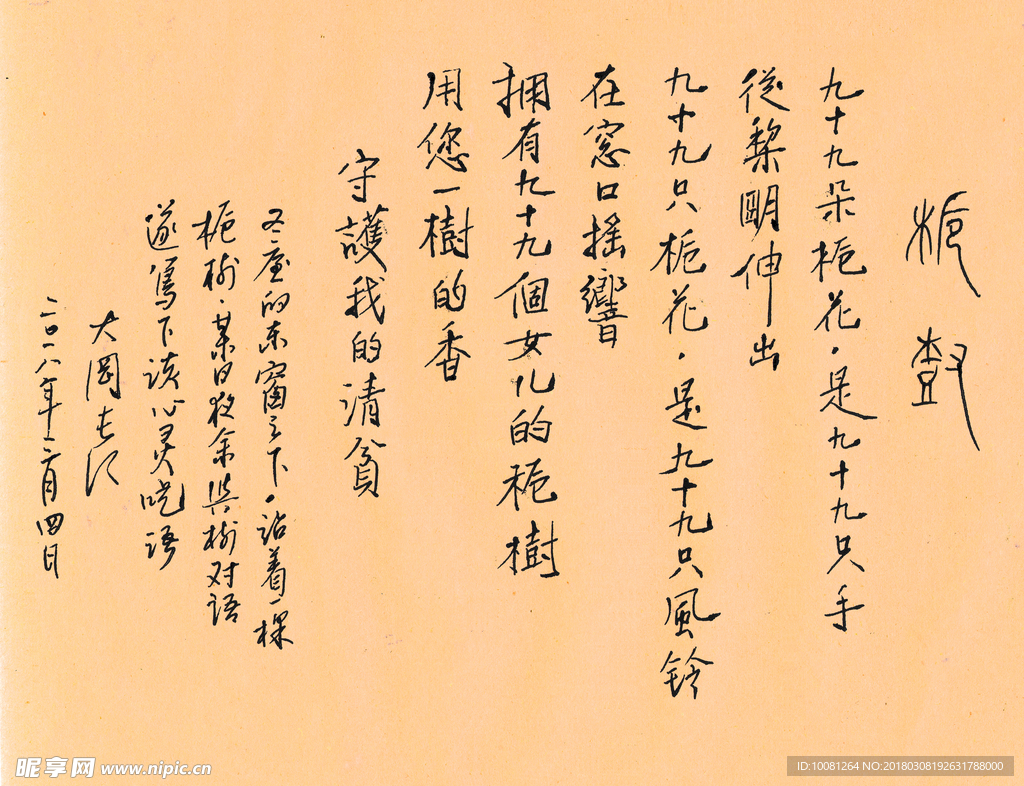 栀 树
九十九朵栀花·是九十九只手
從黎明伸出
九十九只栀花·是九十九只風铃
在窓口摇響
拥有九十九個女儿的栀樹
用您一樹的香
守護我的清貧
冬屋的东窗之下·站着一棵
栀树·某日夜余与树对语
遂写下谈心灵呓语
大岡
二〇一八年二月四日
昵享网 www.nipic.cn
ID:10081264 NO:20180308192631788000